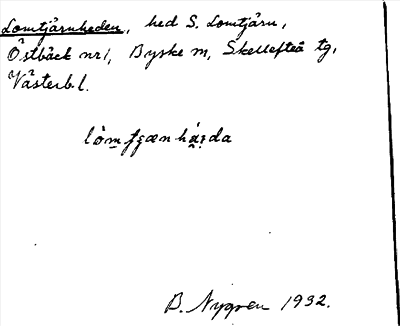 Lomtjärnheden, hed S. Lomtjärn,
Östbäck nr 1, Byske sn, Skellefteå tg,
Västerb. l.
B. Nygren 1932.